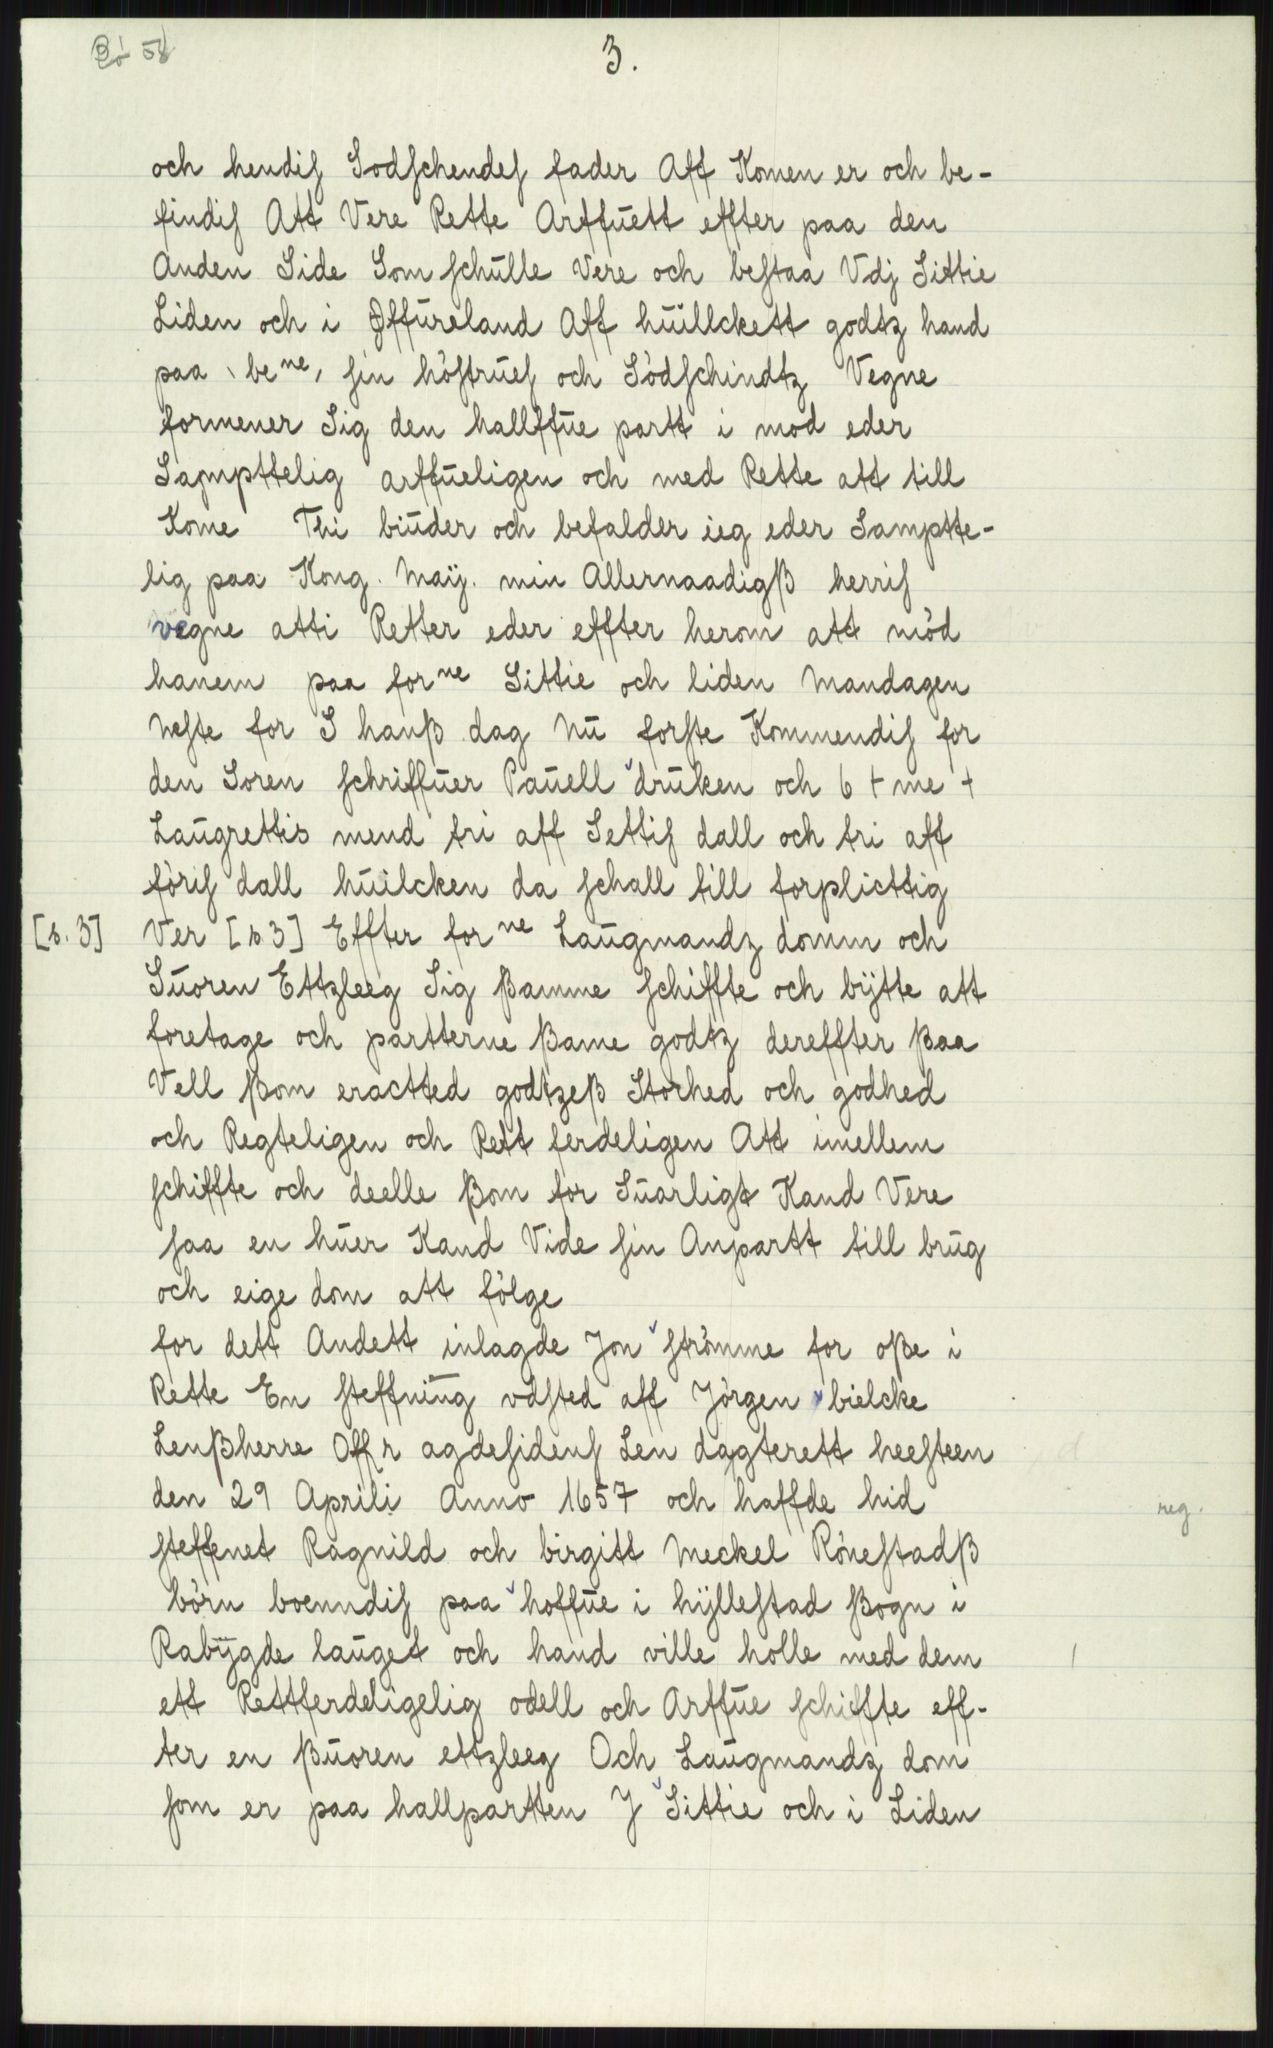 3.
och hendiſ Sodſchendeſ fader Aff Komen er och be-
findiſ Att Vere Rette Arffuett effter paa den
Anden Side Som ſchulle Vere och beſtaa Vdj Sittie
Liden och i Øffureland Aff huillckett godtz hand
paa be ne, ſin höſtrueſ och Södſchindtz Vegne
formener Sig den hallffue partt i mod eder
Sampttelig arffueligen och med Rette att till
Kome Thi biuder och befalder ieg eder Samptte-
lig paa Kong. Maÿ. min Allernaadigß herriſ
vegne atti Retter eder effter herom att möd
hanem paa for ne Sittie och liden Mandagen
Neſte for S hanß dag Nu forſte Kommendiſ for
den Soren ſchriffuer Pauell druken och 6 + me +
Laugrettis mend tri aff Settiſ dall och tri aff
föriſ dall huilcken da ſchall till forplicttig
[s. 3] Ver [s 3] Effter for ne Laugmandz domm och
Suoren Ettzleeg Sig ßamme ſchiffte och bÿtte att
foretage och partterne ßame godtz dereffter ßaa
Vell ßom eractted godtzeß Storhed och godhed
och Regteligen och Rett ferdeligen Att imellem
ſchiffte och deelle ßom for Suarligt Kand Vere
ſaa en huer Kand Vide ſin Anpartt till brug
och eige dom att fölge
for dett Andett inlagde Jon ſtrömme for oße i
Rette En ſteffning vdſted aff Jörgen bielcke
Lenßherre Offr agdeſidenſ Len dagterett heeſteen
den 29 Aprili Anno 1657 och haffde hid
reg.
ſteffenet Ragnild och birgitt Meckel Röneſtadß
börn boenndiſ paa hoffue i hÿlleſtad ßogn i
Rabÿgde lauget och hand ville holle med dem
ett Rettferdeligelig odell och Arffue ſchiffte eff-
ter en ßuoren ettzleeg Och Laugmandz dom
ſom er paa hallpartten J Sittie och i Liden